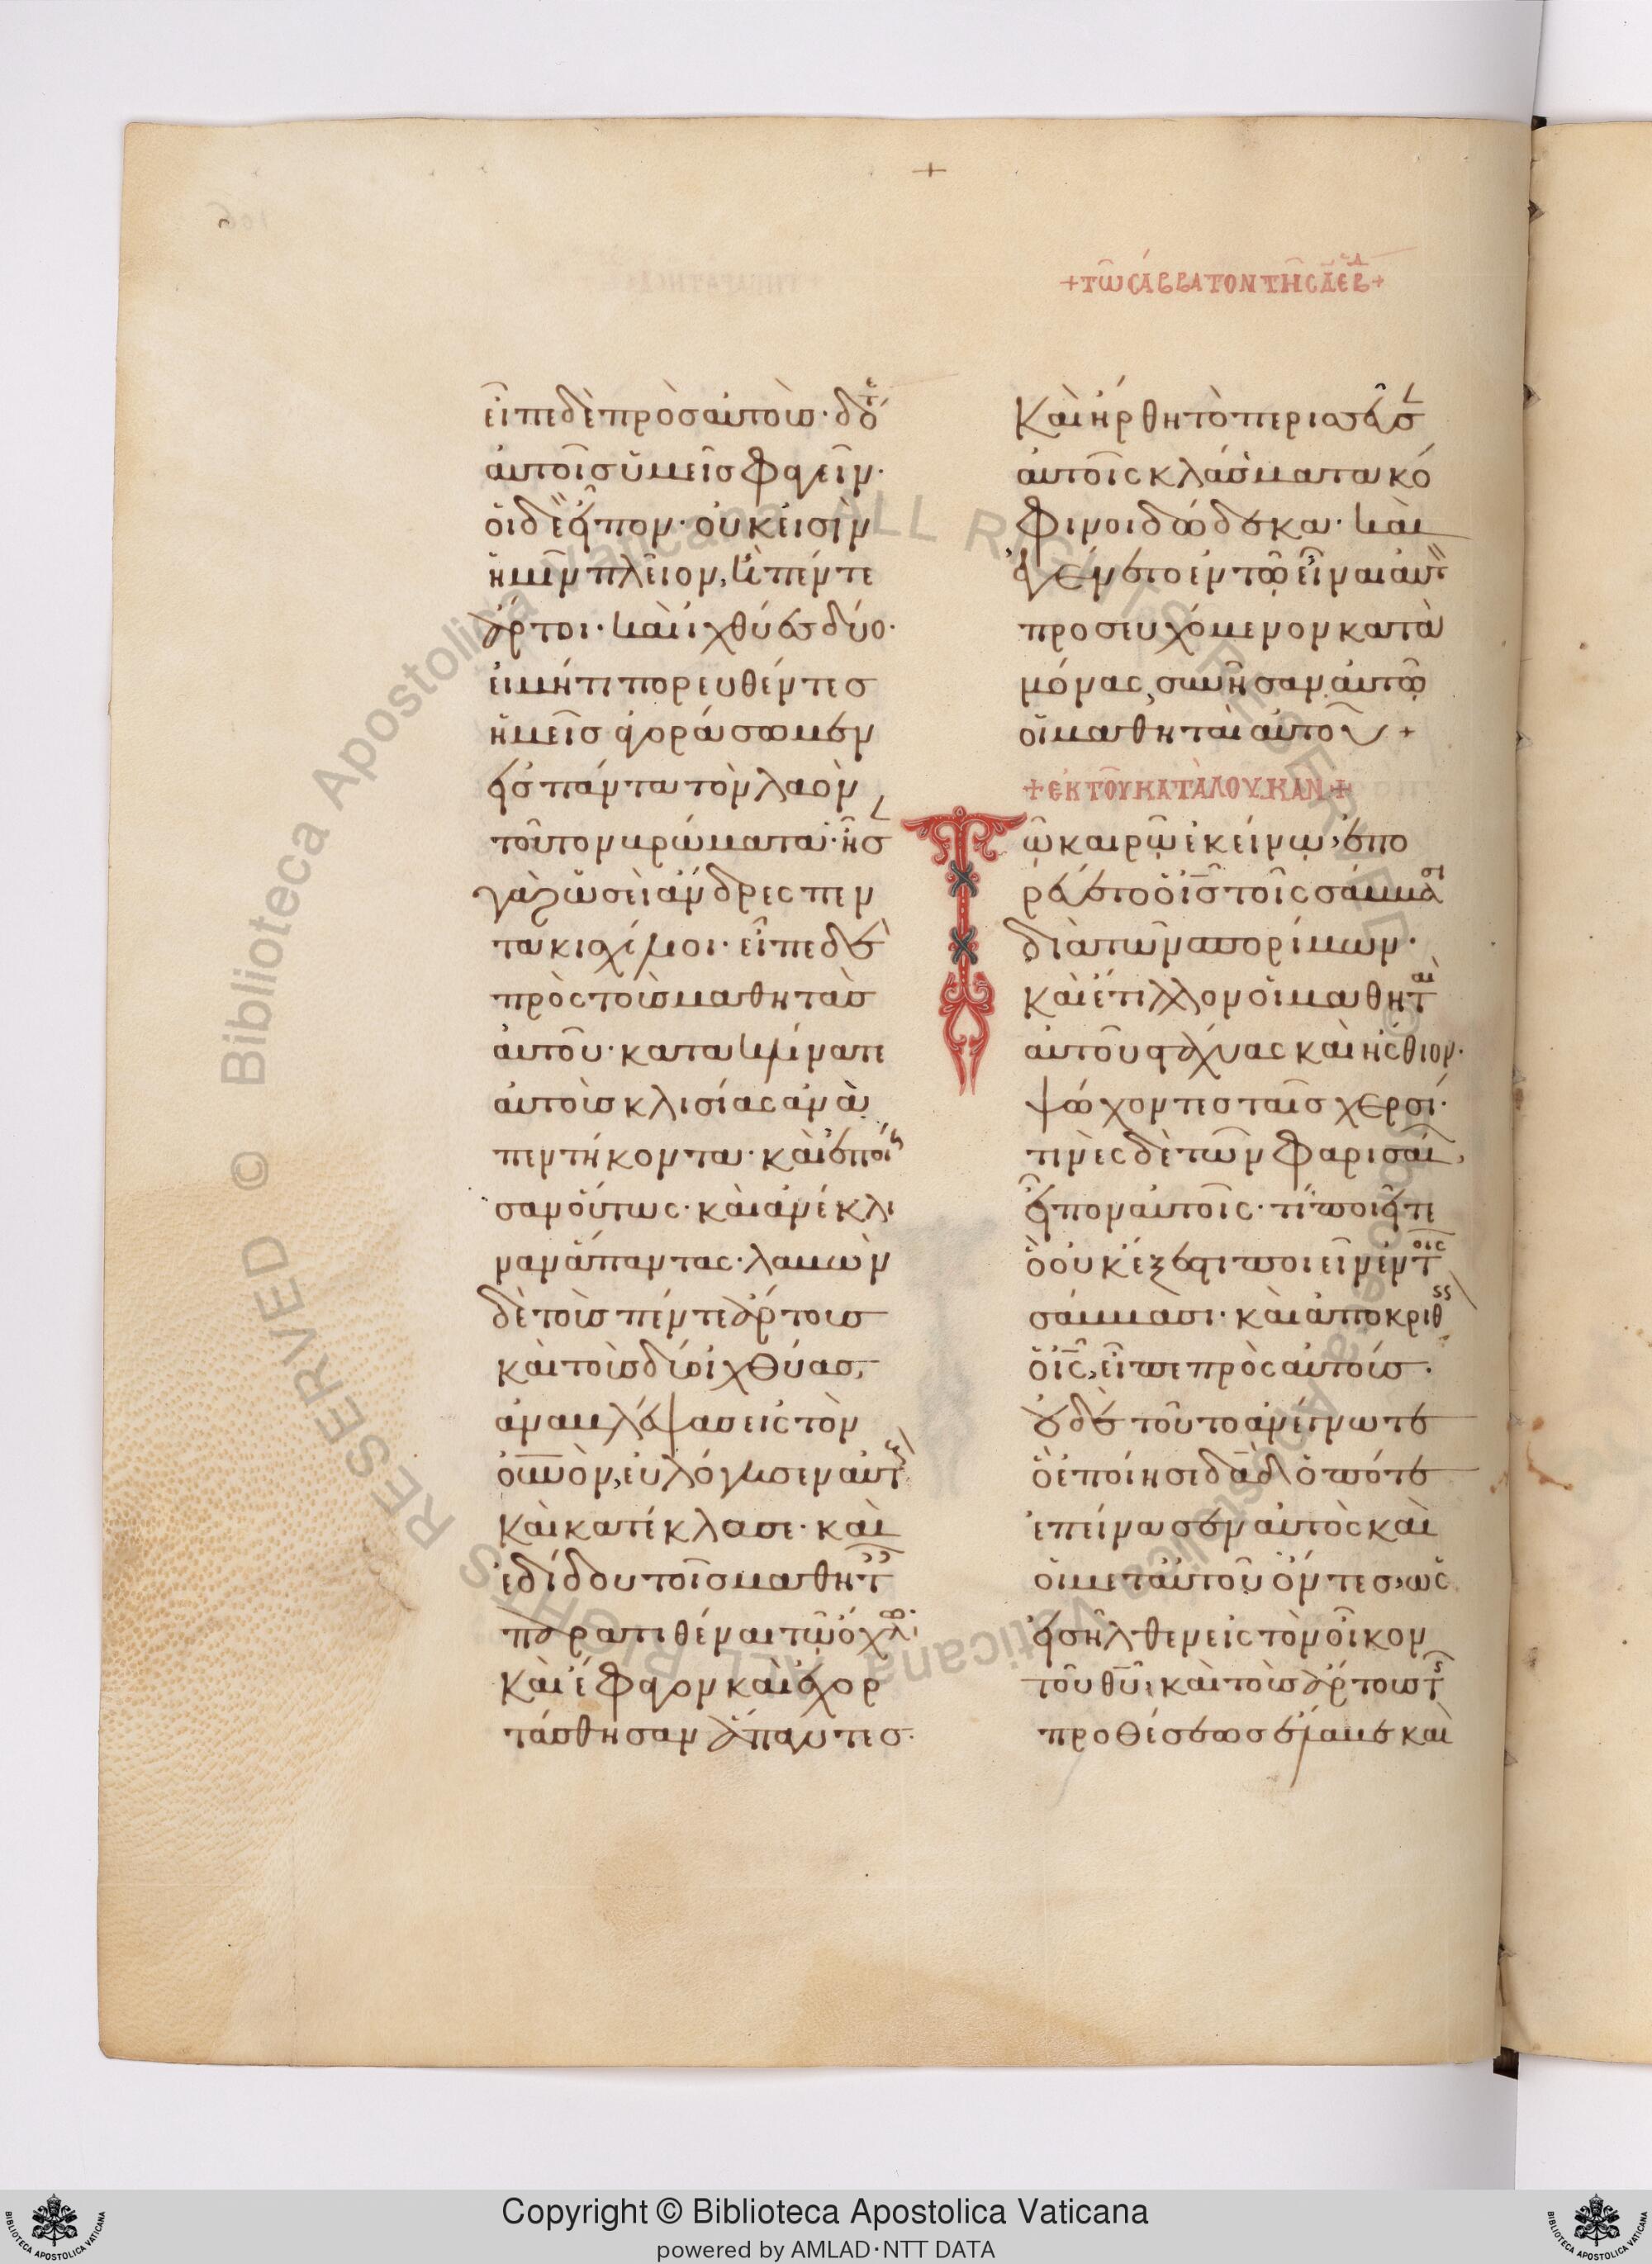 +
+τῶ σάββατον τῆς δ ἑβδ+
εἶπε δὲ πρὸς αὐτούς· δότε
αὐτοῖς ὑμεῖς φαγεῖν·
οἱ δὲ εἶπον· οὐκ εἰσὶν
ἡμῖν πλεῖον, ἢ πέντε
ἄρτοι· καὶ ἰχθύες δύο·
εἰ μήτι πορευθέντες
ἡμεῖς ἀγοράσωμεν
εἰς πάντα τὸν λαὸν
τοῦτον βρώματα· ἦσ
γὰρ ὡσεὶ ἄνδρες πεν
τακισχίλιοι· εἶπε δὲ
πρὸς τοὺς μαθητὰς
αὐτοῦ· κατακλίνατε
αὐτοὺς κλισίας ἀνὰ
πεντήκοντα· καὶ ἐποίη
σαν οὕτως· καὶ ἀνέκλι
ναν ἅπαντας· λαβὼν
δὲ τοὺς πέντε ἄρτους
καὶ τοὺς δύο ἰχθύας,
ἀναβλέψας εἰς τὸν
οὐνὸν, εὐλόγησεν αὐτ
καὶ κατέκλασε· καὶ
ἐδίδου τοῖς μαθητ
παρατιθέναι τῶ ὄχλω·
καὶ ἔφαγον καὶ ἐχορ
τάσθησαν ἅπαντες·
Καὶ ἤρθη τὸ περισσεῦσ
αὐτοῖς κλάσματα κό
φινοι δώδεκα· καὶ
ἐγένετο ἐν τῶ εἶναι αὐτ
προσευχόμενον κατα
μόνας, συνῆσαν αὐτῶ
οἱ μαθηταὶ αὐτοῦ +
+ἐκ τοῦ κατὰ λουκαν+
Τῶ καιρῶ ἐκείνω, ἐπο
ρεύετο ὁ ις τοῖς σάββασι
διὰ τῶν σπορίμων·
καὶ ἔτιλλον οἱ μαθηταὶ
αὐτοῦ στάχυας καὶ ἤσθιον·
ψώχοντες ταῖς χερσί·
τινὲς δὲ τῶν φαρισαί,
εἶπον αὐτοῖς· τί ποιεῖτε
ὃ οὐκ ἔξεστι ποιεῖν ἐν τοῖς
σάββασι· καὶ ἀποκριθ
ὁ ις, εἶπε πρὸς αὐτούς·
οὐδὲ τοῦτο ἀνέγνωτε
ὃ ἐποίησε δαδ ὁπότε
ἐπείνασεν αὐτὸς καὶ
οἱ μετ αὐτοῦ ὄντες, ὡς
εἰσῆλθεν εἰς τὸν οἶκον
τοῦ θυ, καὶ τοὺς ἄρτους τ
προθέσεως ἔλαβε καὶ
Copyright © Biblioteca Apostolica Vaticana
powered by AMLAD·NTT DATA